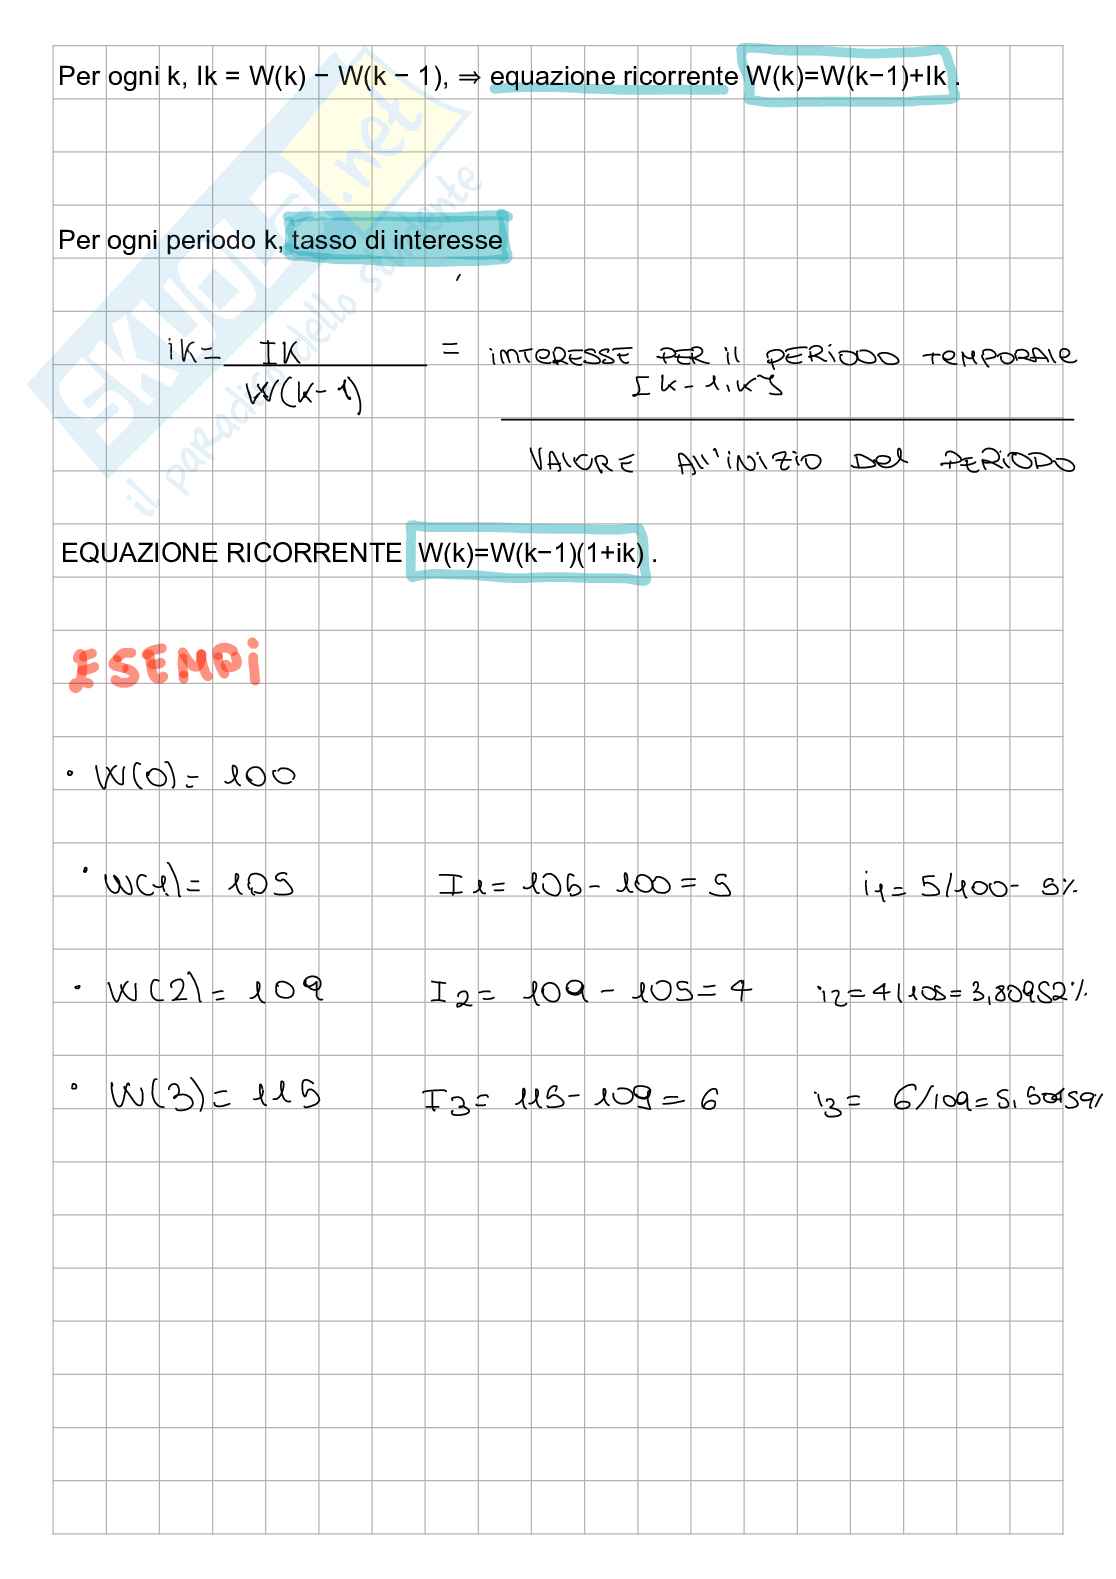 Per ogni k, Ik = W(k) − W(k − 1), ⇒ equazione ricorrente W(k)=W(k−1)+Ik .
Per ogni periodo k, tasso di interesse
iK= IK = iNTERESSE PER il PERIODO TEMPORALE
W(K-1) [K-1,K]
VALORE All'iNiZiO Del PERIODO
EQUAZIONE RICORRENTE W(k)=W(k−1)(1+ik) .
ESEMPi
• W(0)= 100
• W(1)= 105 I1= 105-100=5 i1= 5/100- 5%
• W(2)= 109 I2= 109-105=4 i2=4/105=3,80952%
• W(3)= 115 I3= 115-109=6 i3= 6/109=5,504591
SKUOLA.net
il paradiso dello studente